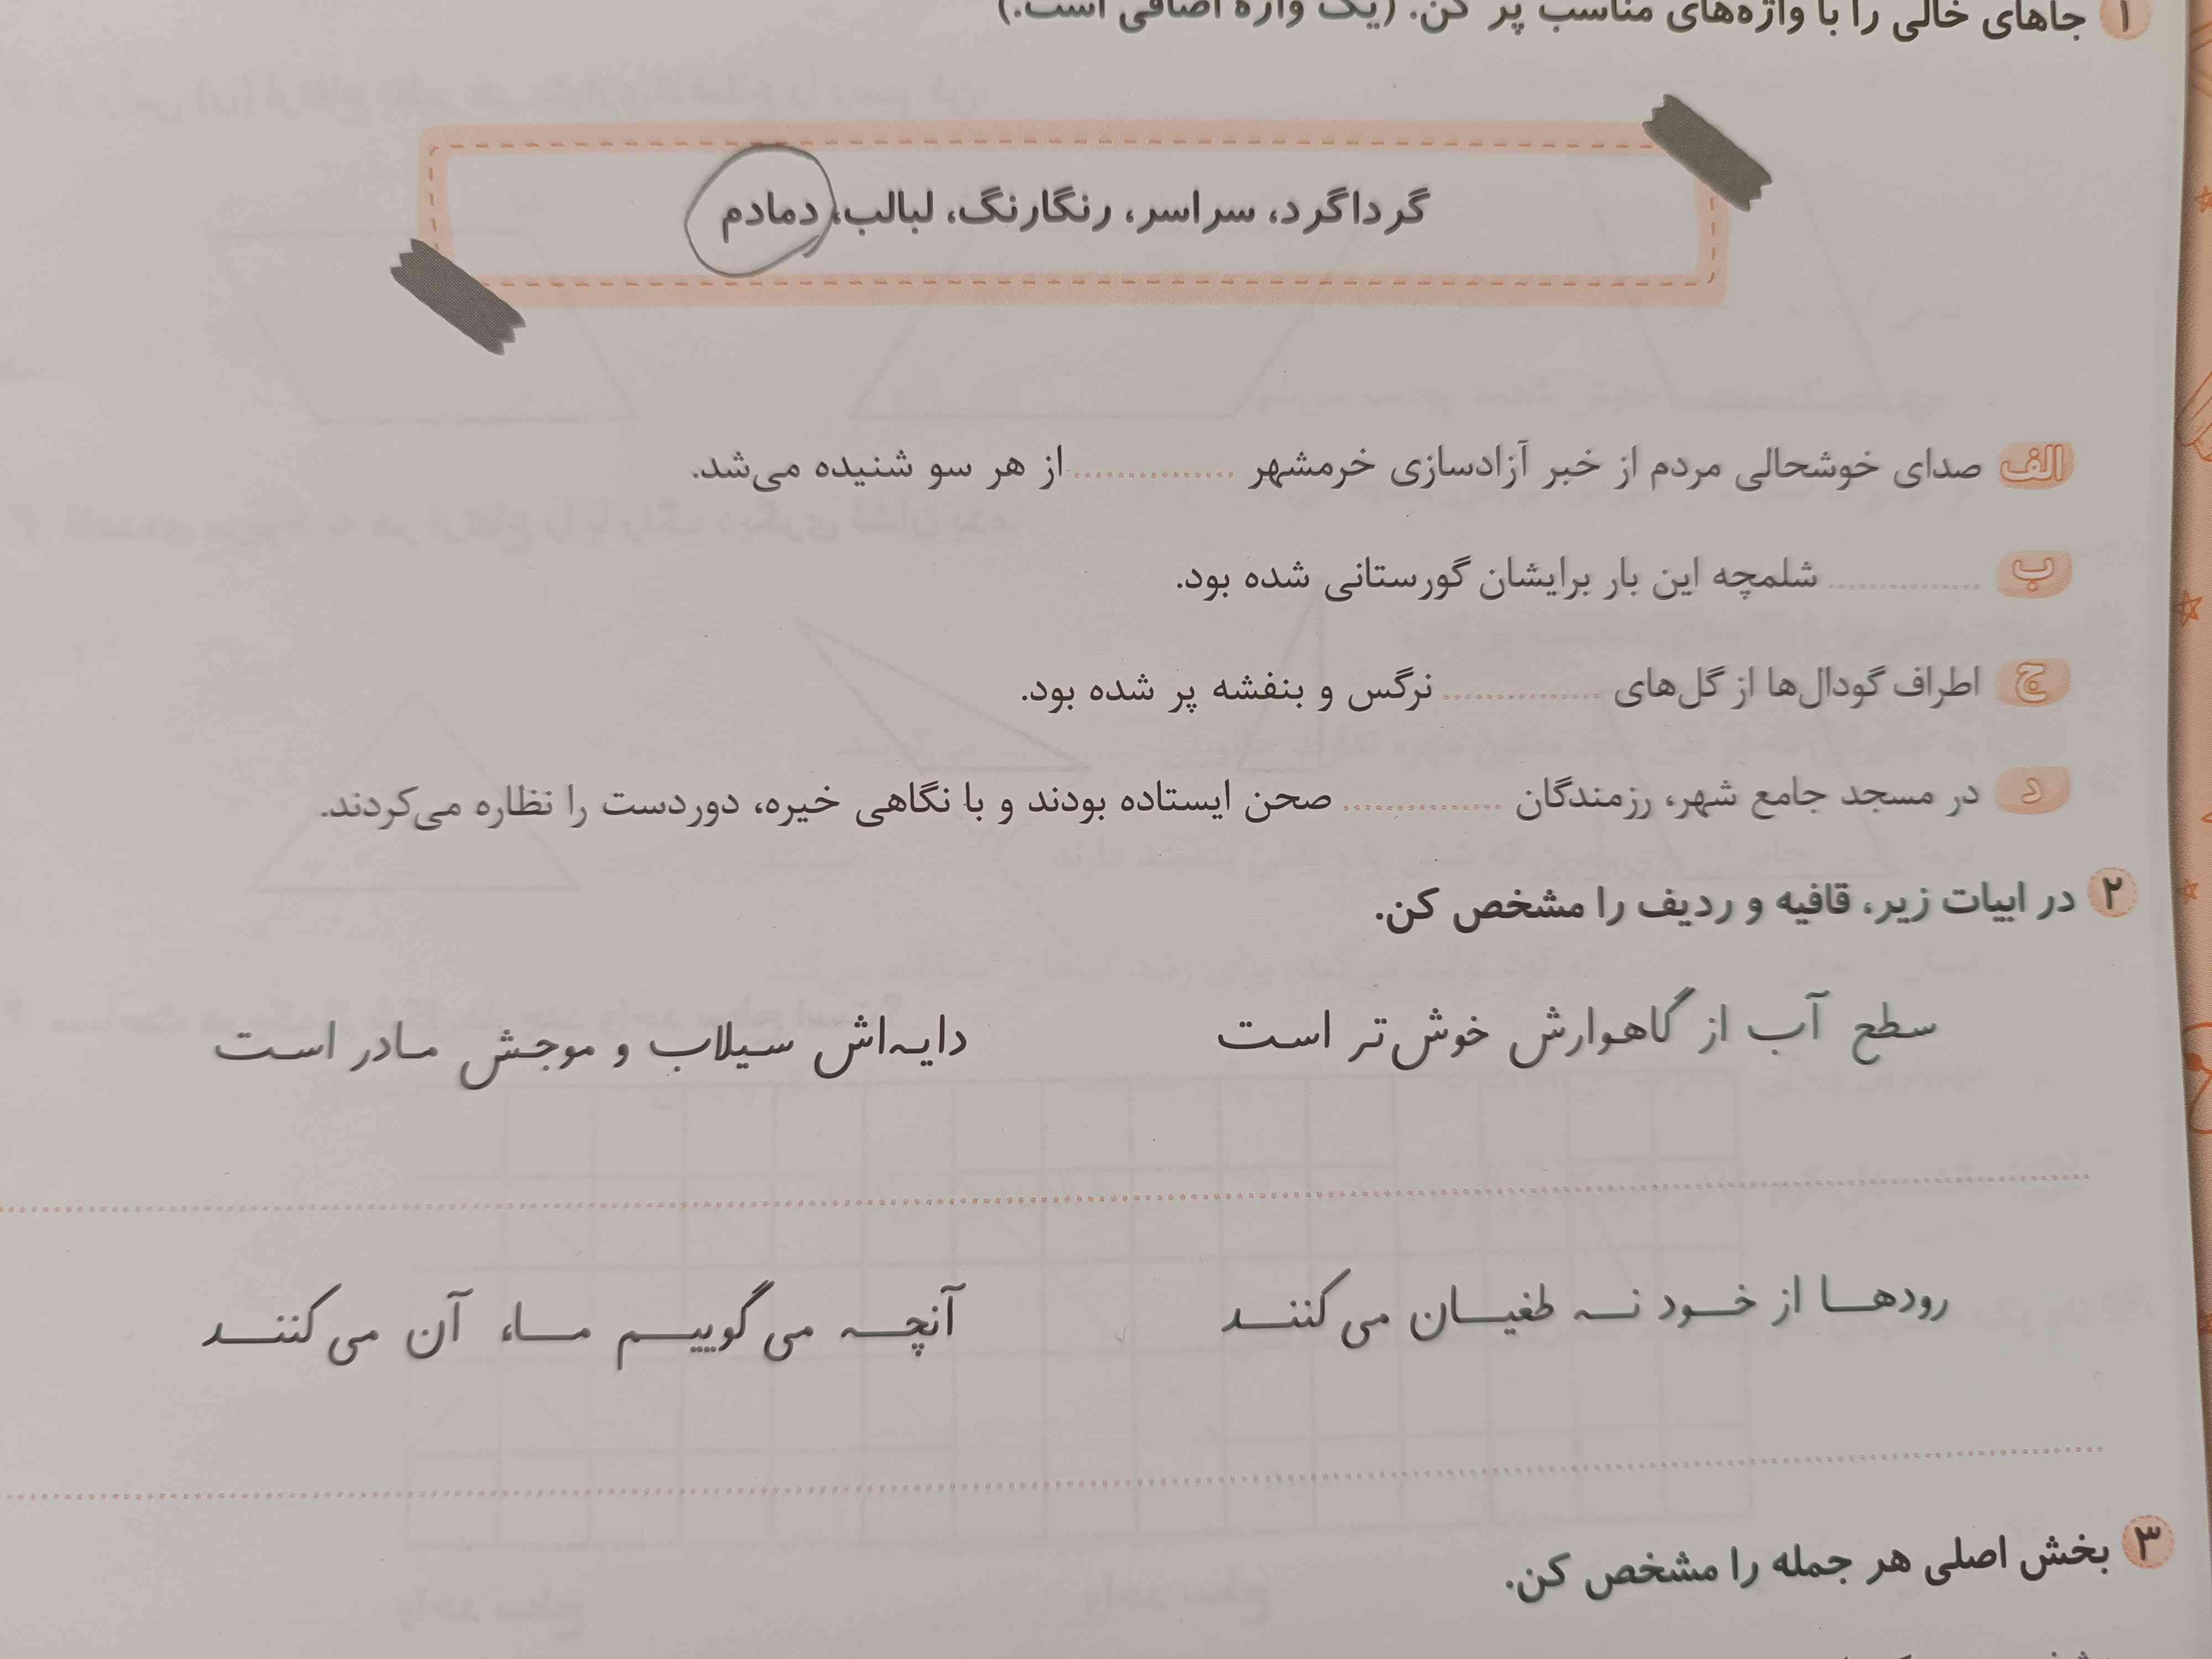 ۱ جاهای خالی را با واژه‌های مناسب پر کن. (یک واژه اضافی است.)
گرداگرد، سراسر، رنگارنگ، لبالب، دمادم
الف صدای خوشحالی مردم از خبر آزادسازی خرمشهر .............. از هر سو شنیده می‌شد.
ب .............. شلمچه این بار برایشان گورستانی شده بود.
ج اطراف گودال‌ها از گل‌های .............. نرگس و بنفشه پر شده بود.
د در مسجد جامع شهر، رزمندگان .............. صحن ایستاده بودند و با نگاهی خیره، دوردست را نظاره می‌کردند.
۲ در ابیات زیر، قافیه و ردیف را مشخص کن.
سطح آب از گاهوارش خوش‌تر است دایه‌اش سیلاب و موجش مادر است
رودها از خود نه طغیان می‌کنند آنچه می‌گوییم ماء آن می‌کنند
۳ بخش اصلی هر جمله را مشخص کن.